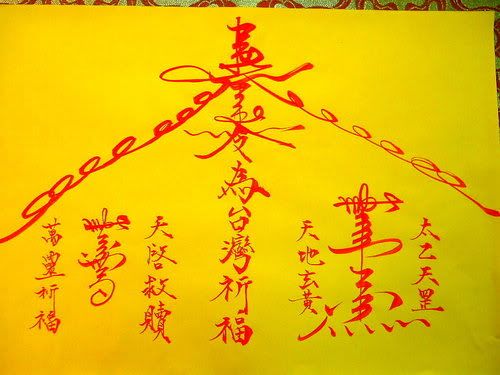 太乙天罡
天地玄黃
為台灣祈福
天啓救贖
萬豊祈福